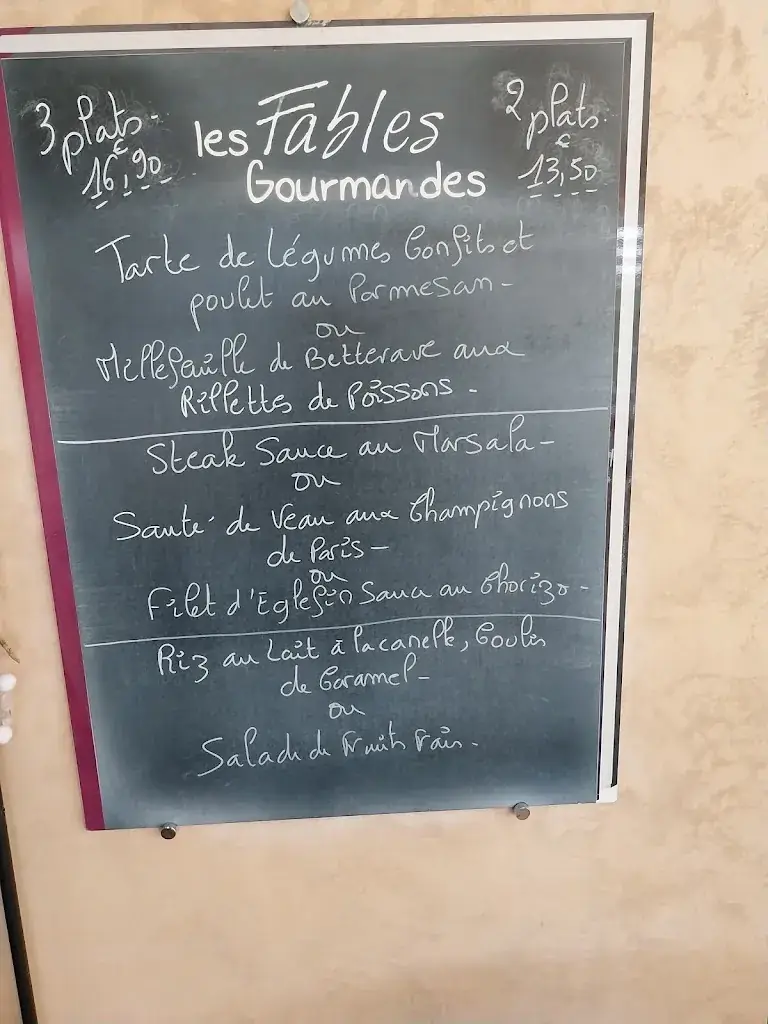 3 plats
€
16,90
les Fables
Gourmandes
2 plats
€
13,50
Tarte de légumes Confits et
poulet au Parmesan -
ou
Millefeuille de Betterave aux
Rillettes de Poissons -
Steak Sauce au Marsala -
ou
Sauté de Veau aux Champignons
de Paris -
ou
Filet d'Eglefin Sauce au Chorizo -
Riz au Lait à la canelle, Coulis
de Caramel -
ou
Salade de Fruits Frais -